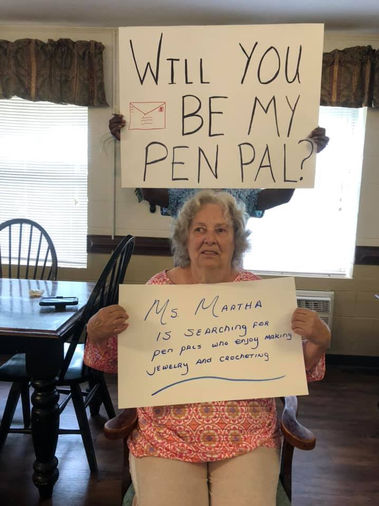 WILL YOU
BE MY
PEN PAL?
MS. MARTHA
IS SEARCHING FOR
PEN PALS WHO ENJOY MAKING
JEWELRY AND CROCHETING